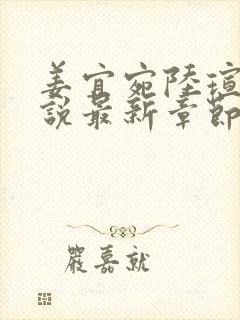 姜宜宛陸瑄
說最新章節
嚴嘉就